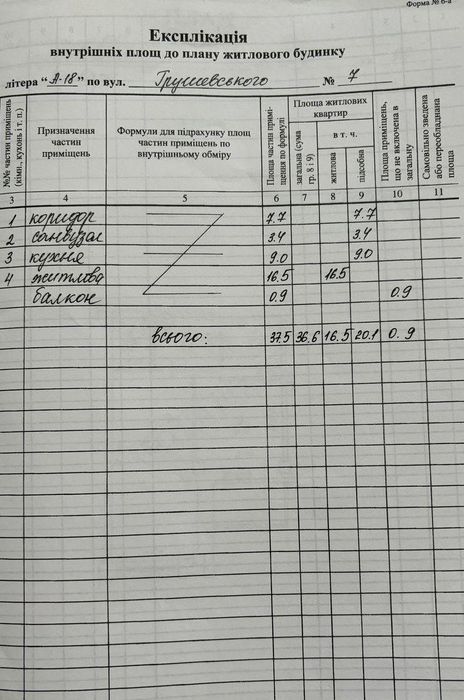 Форма № 6-а
Експлікація
внутрішніх площ до плану житлового будинку
літера "А-18" по вул. Грушевського № 7
№№ частин приміщень (кімн., кухонь і т. п.)
Призначення частин приміщень
Формули для підрахунку площ частин приміщень по внутрішньому обміру
Площа частин приміщення по формулі
Площа житлових квартир
загальна (сума гр. 8 і 9)
в т. ч.
житлова
підсобна
Площа приміщень, що не включена в загальну
Самовільно зведена або переобладнана площа
3 4 5 6 7 8 9 10 11
1 коридор 7.7 7.7
2 санвузол 3.4 3.4
3 кухня 9.0 9.0
4 житлова 16.5 16.5
балкон 0.9 0.9
всього: 37.5 36.6 16.5 20.1 0.9